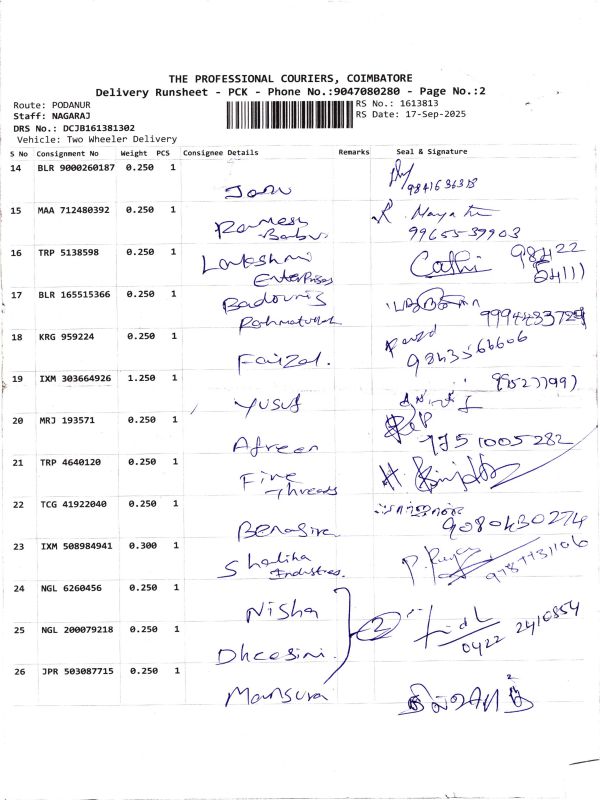 THE PROFESSIONAL COURIERS, COIMBATORE
Delivery Runsheet - PCK - Phone No.:9047080280 - Page No.:2
Route: PODANUR
Staff: NAGARAJ
DRS No.: DCJB161381302
Vehicle: Two Wheeler Delivery
RS No.: 1613813
RS Date: 17-Sep-2025
S No Consignment No Weight PCS Consignee Details Remarks Seal & Signature
14 BLR 9000260187 0.250 1
9841636318
15 MAA 712480392 0.250 1 Ramesh
Babu
9965539903
16 TRP 5138598 0.250 1 Lakshmi
Enterprises
Cathi 98422
54111
17 BLR 165515366 0.250 1 Badouris
Rahmatullah
9994433729
18 KRG 959224 0.250 1 Faizal.
9843566606
19 IXM 303664926 1.250 1 Yusuf
20 MRJ 193571 0.250 1 Afreen
7751005282
21 TRP 4640120 0.250 1 Fine
Threads
22 TCG 41922040 0.250 1 Benasira
9080430274
23 IXM 508984941 0.300 1 Shaliha
Industries.
24 NGL 6260456 0.250 1 Nisha
2
0422 2416854
25 NGL 200079218 0.250 1 Dhcesini.
26 JPR 503087715 0.250 1 Mansura